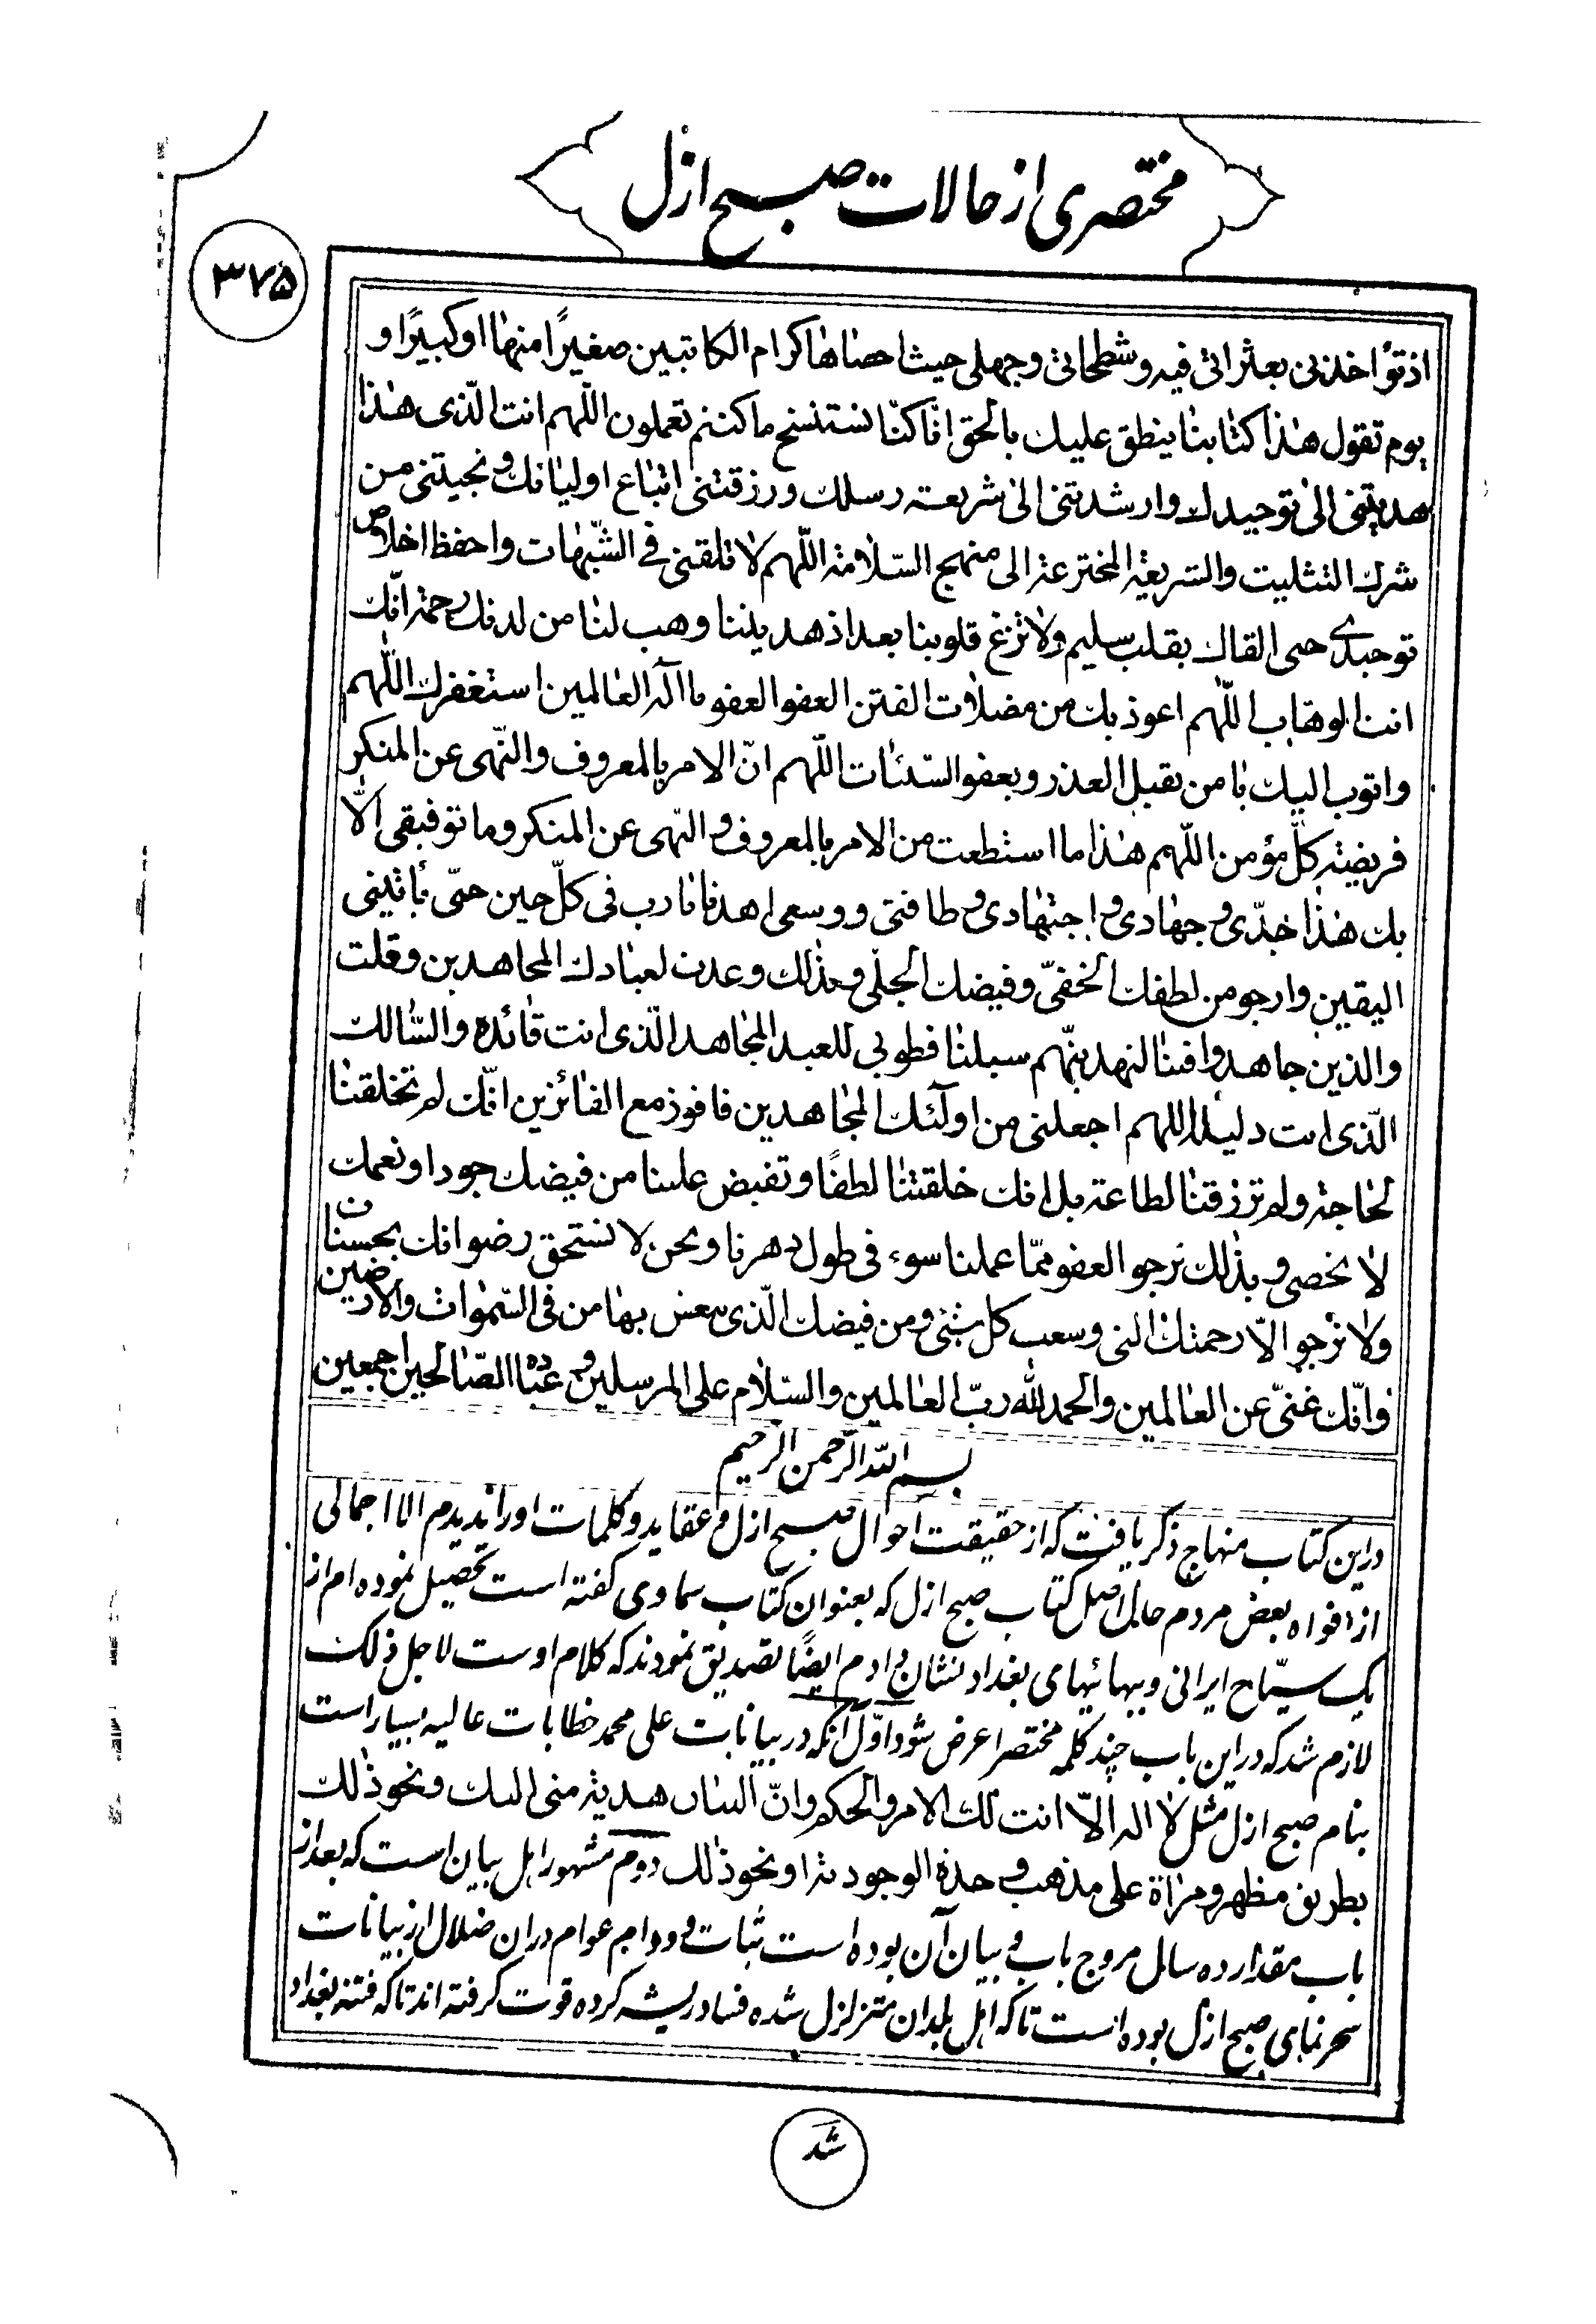 مختصری از حالات صبح ازل
۳۷۵
اذ تؤاخذنی بعثراتی فیه وشطحاتی وجهلی حیث احصاها کرام الکاتبین صغیرًا منها او کبیرًا و
یوم تقول هذا کتابنا ینطق علیك بالحق انّا کنّا نستنسخ ما کنتم تعملون اللّهم انت الّذی هذا
هدیتنی الی توحیدك وارشدتنی الی شریعة رسلك ورزقتنی اتباع اولیائك ونجیتنی من
شرك التثلیث والشریعة المخترعة الی منهج السّلامة اللّهم لا تلقنی فی الشّبهات واحفظ اخلاص
توحیدی حتی القاك بقلب سلیم ولا تزغ قلوبنا بعد اذ هدیتنا وهب لنا من لدنك رحمة انّك
انت الوهّاب اللّهم اعوذ بك من مضلات الفتن العفو العفو یا اله العالمین استغفرك اللّهم
واتوب الیك یا من یقبل العذر ویعفو السّیئات اللّهم انّ الامر بالمعروف والنّهی عن المنکر
فریضة کلّ مؤمن اللّهم هذا ما استطعت من الامر بالمعروف والنّهی عن المنکر وما توفیقی الّا
بك هذا جدّی وجهادی واجتهادی وطاقتی ووسعی اهدنا یا رب فی کلّ حین حتّی یأتینی
الیقین وارجو من لطفك الخفیّ وفیضك الجلّی وبذلك وعدت لعبادك المجاهدین وقلت
والذین جاهدوا فینا لنهدینّهم سبلنا فطوبی للعبد المجاهد الّذی انت قائده والسّالك
الّذی انت دلیله اللهم اجعلنی من اولئك المجاهدین فافوز مع الفائزین انّك لم تخلقنا
لحاجة ولم ترزقنا لطاعة بل انك خلقتنا لطفًا وتفیض علینا من فیضك جودا ونعمك
لا تحصی وبذلك نرجو العفو ممّا عملنا سوء فی طول دهرنا ونحن لا نستحق رضوانك بحسنات
ولا نرجو الّا رحمتك التی وسعت کل شئ ومن فیضك الّذی یعیش بها من فی السّموات والارضین
فانّك غنیّ عن العالمین والحمد لله ربّ العالمین والسّلام علی المرسلین وعباده الصّالحین اجمعین
بسم الله الرّحمن الرّحیم
در این کتاب منهاج ذکر یافت که از حقیقت احوال صبح ازل و عقاید و کلمات او را ندیدم الا اجمالی
از افواه بعض مردم حال اصل کتاب صبح ازل که بعنوان کتاب سماوی گفته است تحصیل نموده ام از
یک سیّاح ایرانی و ببهائیهای بغداد نشان دادم ایضًا تصدیق نمودند که کلام اوست لاجل ذلک
لازم شد که در این باب چند کلمه مختصرا عرض شود اوّل آنکه در بیانات علی محمد خطابات عالیه بسیار است
بنام صبح ازل مثل لا اله الّا انت لك الامر والحکم وانّ البیان هدیة منی الیك ونحو ذلك
بطریق مظهر و مرآة علی مذهب وحدة الوجود ترا ونحو ذلك دوم مشهور اهل بیان است که بعد از
باب مقدار ده سال مروج باب و بیان آن بوده است ثبات و دوام عوام در ان ضلال از بیانات
سحر نمای صبح ازل بوده است تا که اهل بلدان متزلزل شده فساد ریشه کرده قوت گرفته اند تا که فتنه بغداد
شد